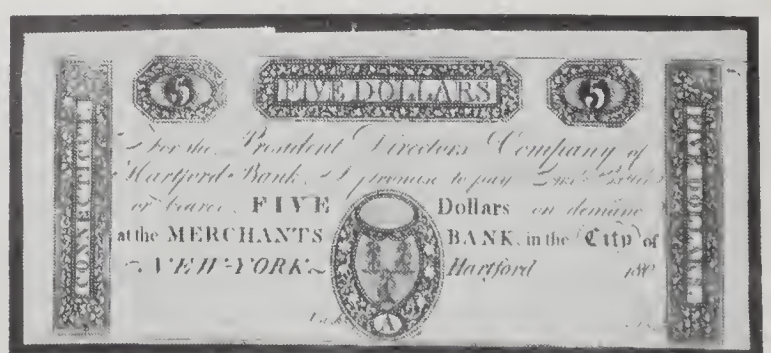 5 FIVE DOLLARS 5
CONNECTICUT
For the President Directors Company of
Hartford Bank, I promise to pay
or bearer, FIVE Dollars on demand
at the MERCHANTS BANK, in the City of
NEW-YORK Hartford 180
A
FIVE DOLLARS